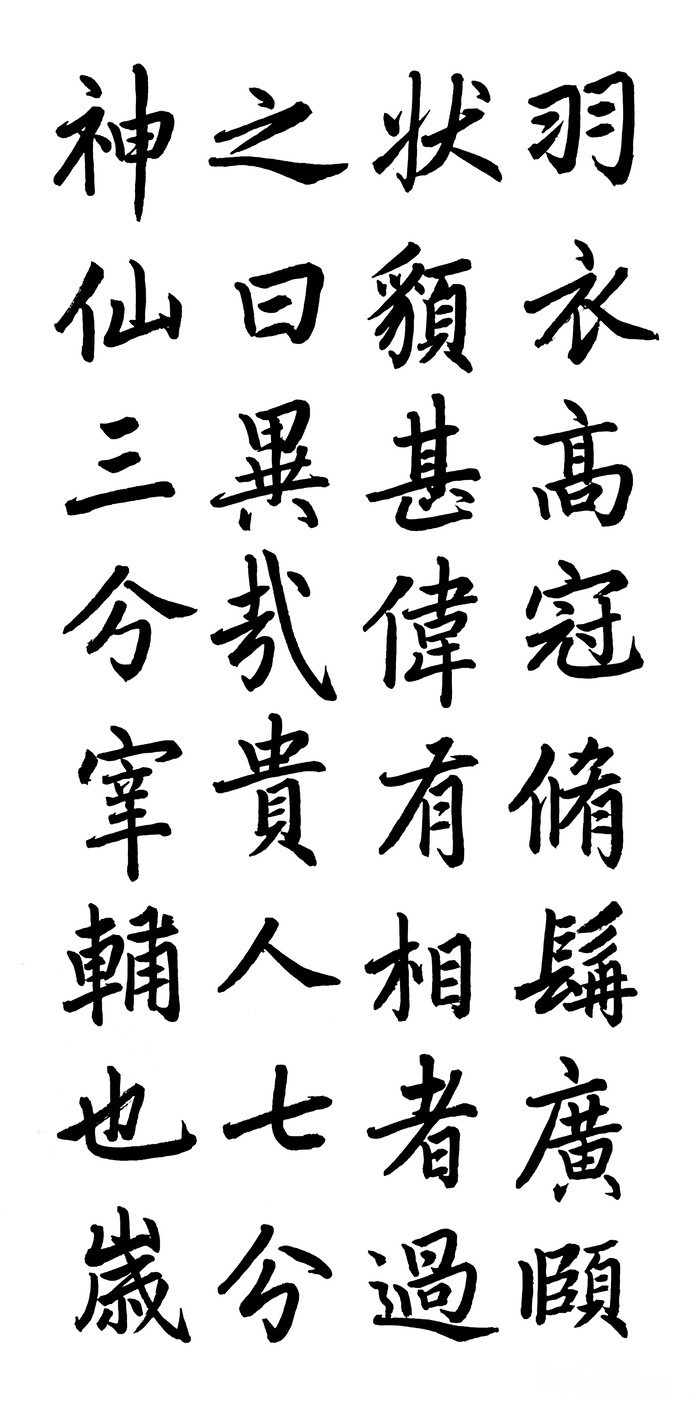 羽衣高冠脩髯廣頤
狀䫉甚偉有相者過
之曰異哉貴人七分
神仙三分宰輔也歲